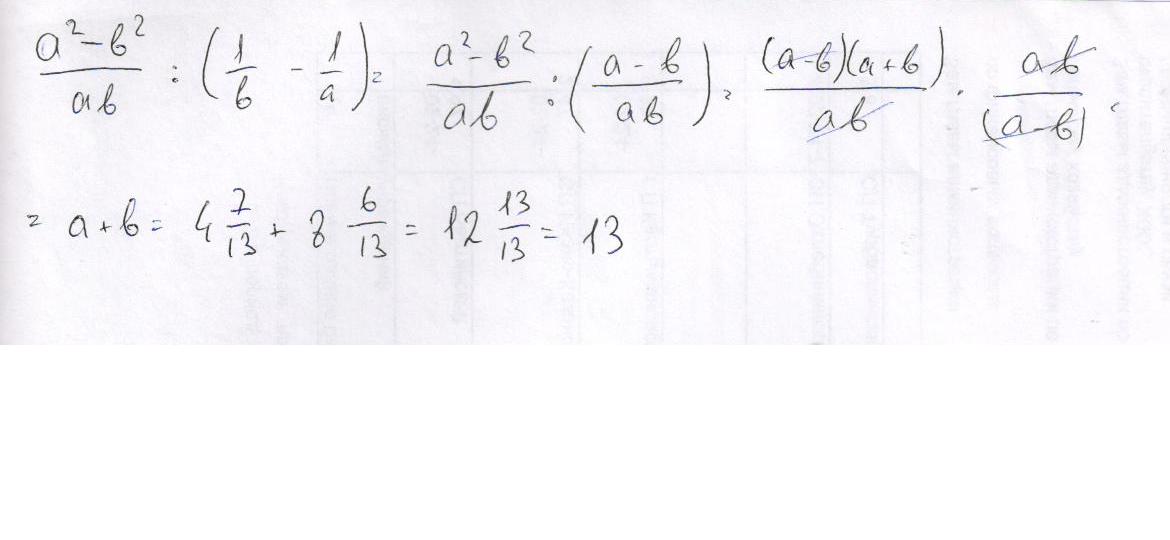 (a² - b²)/(ab) : (1/b - 1/a) = (a² - b²)/(ab) : ((a - b)/(ab)) = ((a-b)(a+b))/(ab) · (ab)/((a-b)) =
= a + b = 4 7/13 + 8 6/13 = 12 13/13 = 13